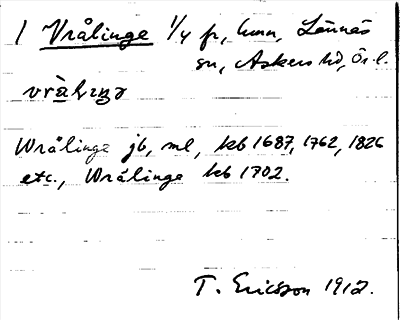 1 Vrålinge 1/4 fr, hmn, Lännäs
sn, Askers hd, Ör. l.
vràliŋə
Wrålinge jb, ml, kb 1687, 1762, 1826
etc., Wrålinga kb 1702.
T. Ericsson 1912.